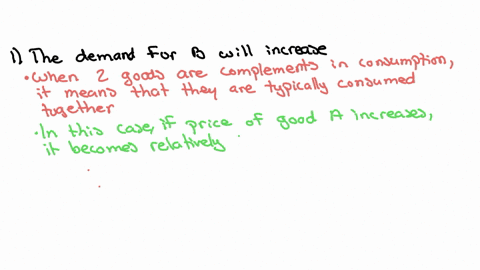 1) The demand for B will increase
• When 2 goods are complements in consumption,
it means that they are typically consumed
together
• In this case, if price of good A increases,
it becomes relatively